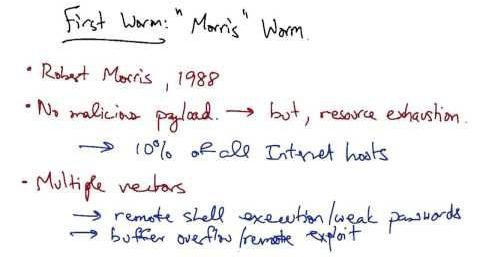 First Worm: "Morris" Worm.
• Robert Morris, 1988
• No malicious payload. → but, resource exhaustion.
→ 10% of all Internet hosts
- Multiple vectors
→ remote shell execution/weak passwords
→ buffer overflow/remote exploit